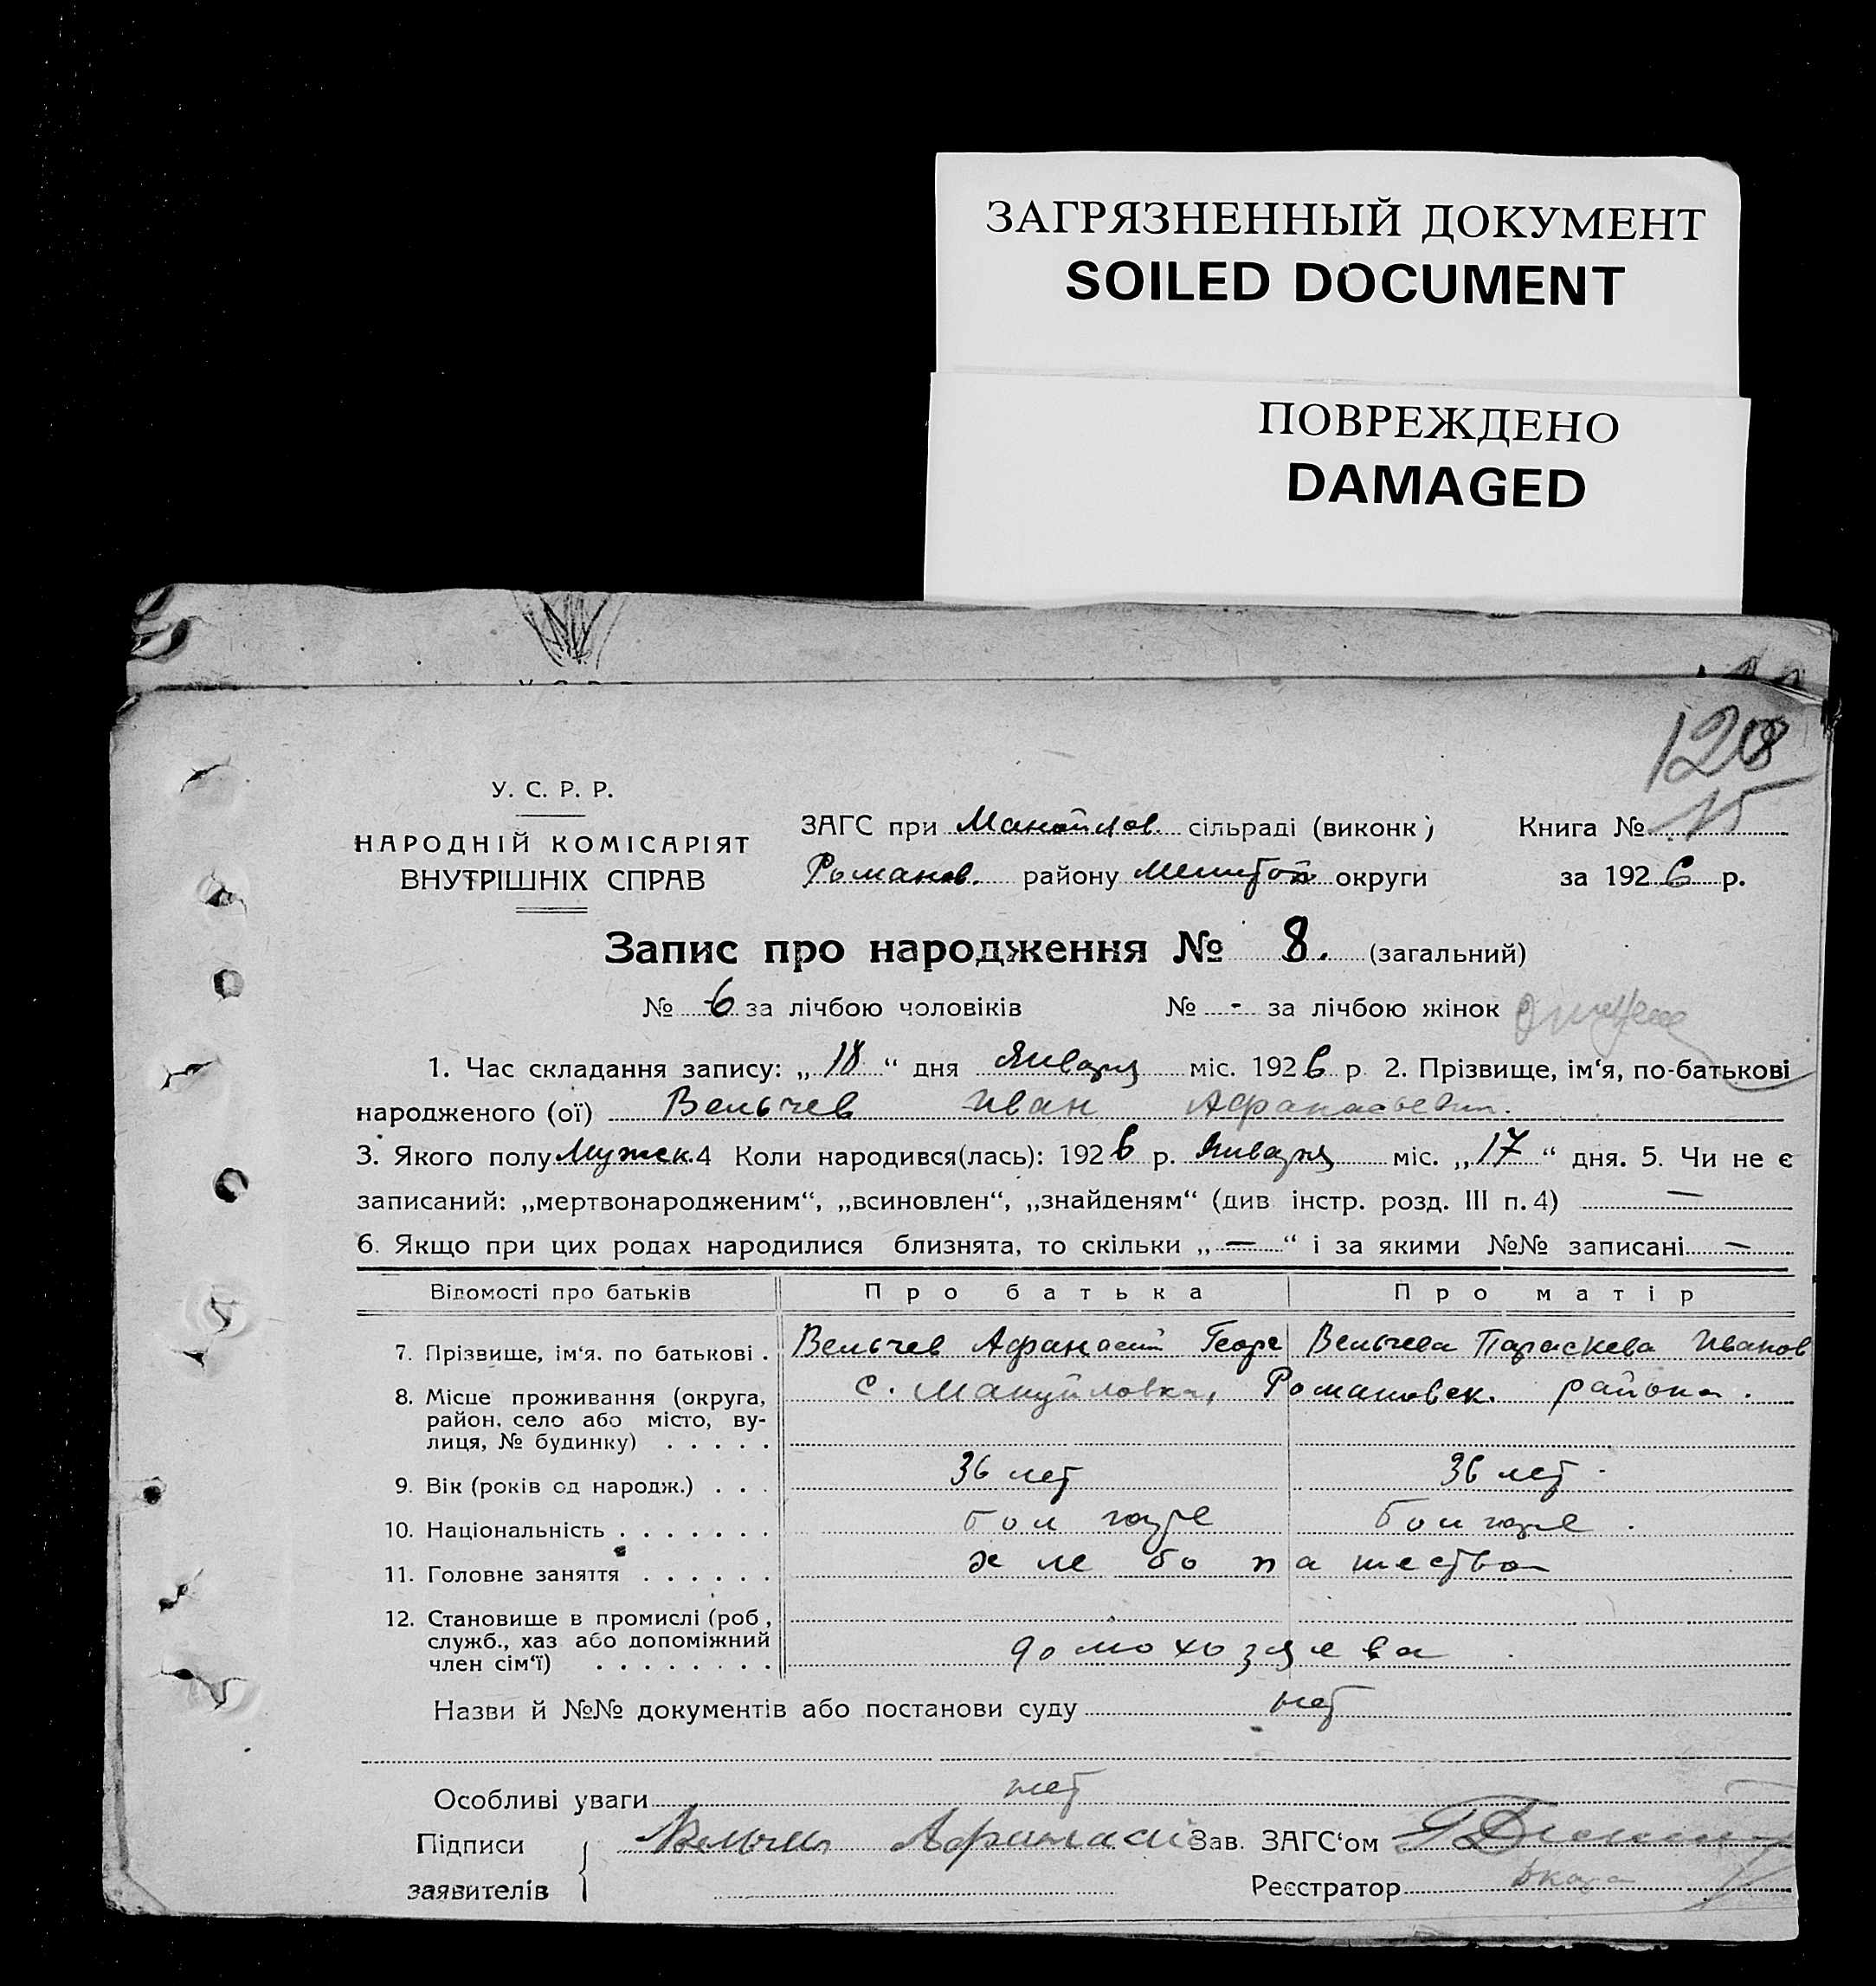 ЗАГРЯЗНЕННЫЙ ДОКУМЕНТ
SOILED DOCUMENT
ПОВРЕЖДЕНО
DAMAGED
128
У. С. Р. Р.
НАРОДНІЙ КОМІСАРІЯТ
ВНУТРІШНІХ СПРАВ
ЗАГС при Мануйлов. сільраді (виконк) Книга № 15
Романов. району округи за 1926 р.
Запис про народження № 8. (загальний)
№ 6 за лічбою чоловіків № - за лічбою жінок
1. Час складання запису: „18“ дня Января міс. 1926 р 2. Прізвище, ім‘я, по-батькові
народженого (ої) Вельчев Иван Афанасьевич.
3. Якого полу Мужск. 4 Коли народився(лась): 1926 р. Января міс. „17“ дня. 5. Чи не є
записаний: „мертвонародженим“, „всиновлен“, „знайденям“ (див інстр. розд. III п. 4) —
6. Якщо при цих родах народилися близнята, то скільки „—“ і за якими №№ записані —
Відомості про батьків Про батька Про матір
7. Прізвище, ім‘я. по батькові . Вельчев Афанасий Георг Вельчева Параскева Иванов
8. Місце проживання (округа, с. Мануйловка, Романовск. района.
район, село або місто, ву-
лиця, № будинку) . . . . .
9. Вік (років од народж.) . . . 36 лет 36 лет.
10. Національність . . . . . . . болгаре болгаре.
11. Головне заняття . . . . . . хлебопашество
12. Становище в промислі (роб,
служб., хаз або допоміжний
член сім‘ї) . . . . . . . . домохозяева
Назви й №№ документів або постанови суду нет
Особливі уваги нет
Підписи Вельчев Афанасий Зав. ЗАГС‘ом
заявителів Реєстратор